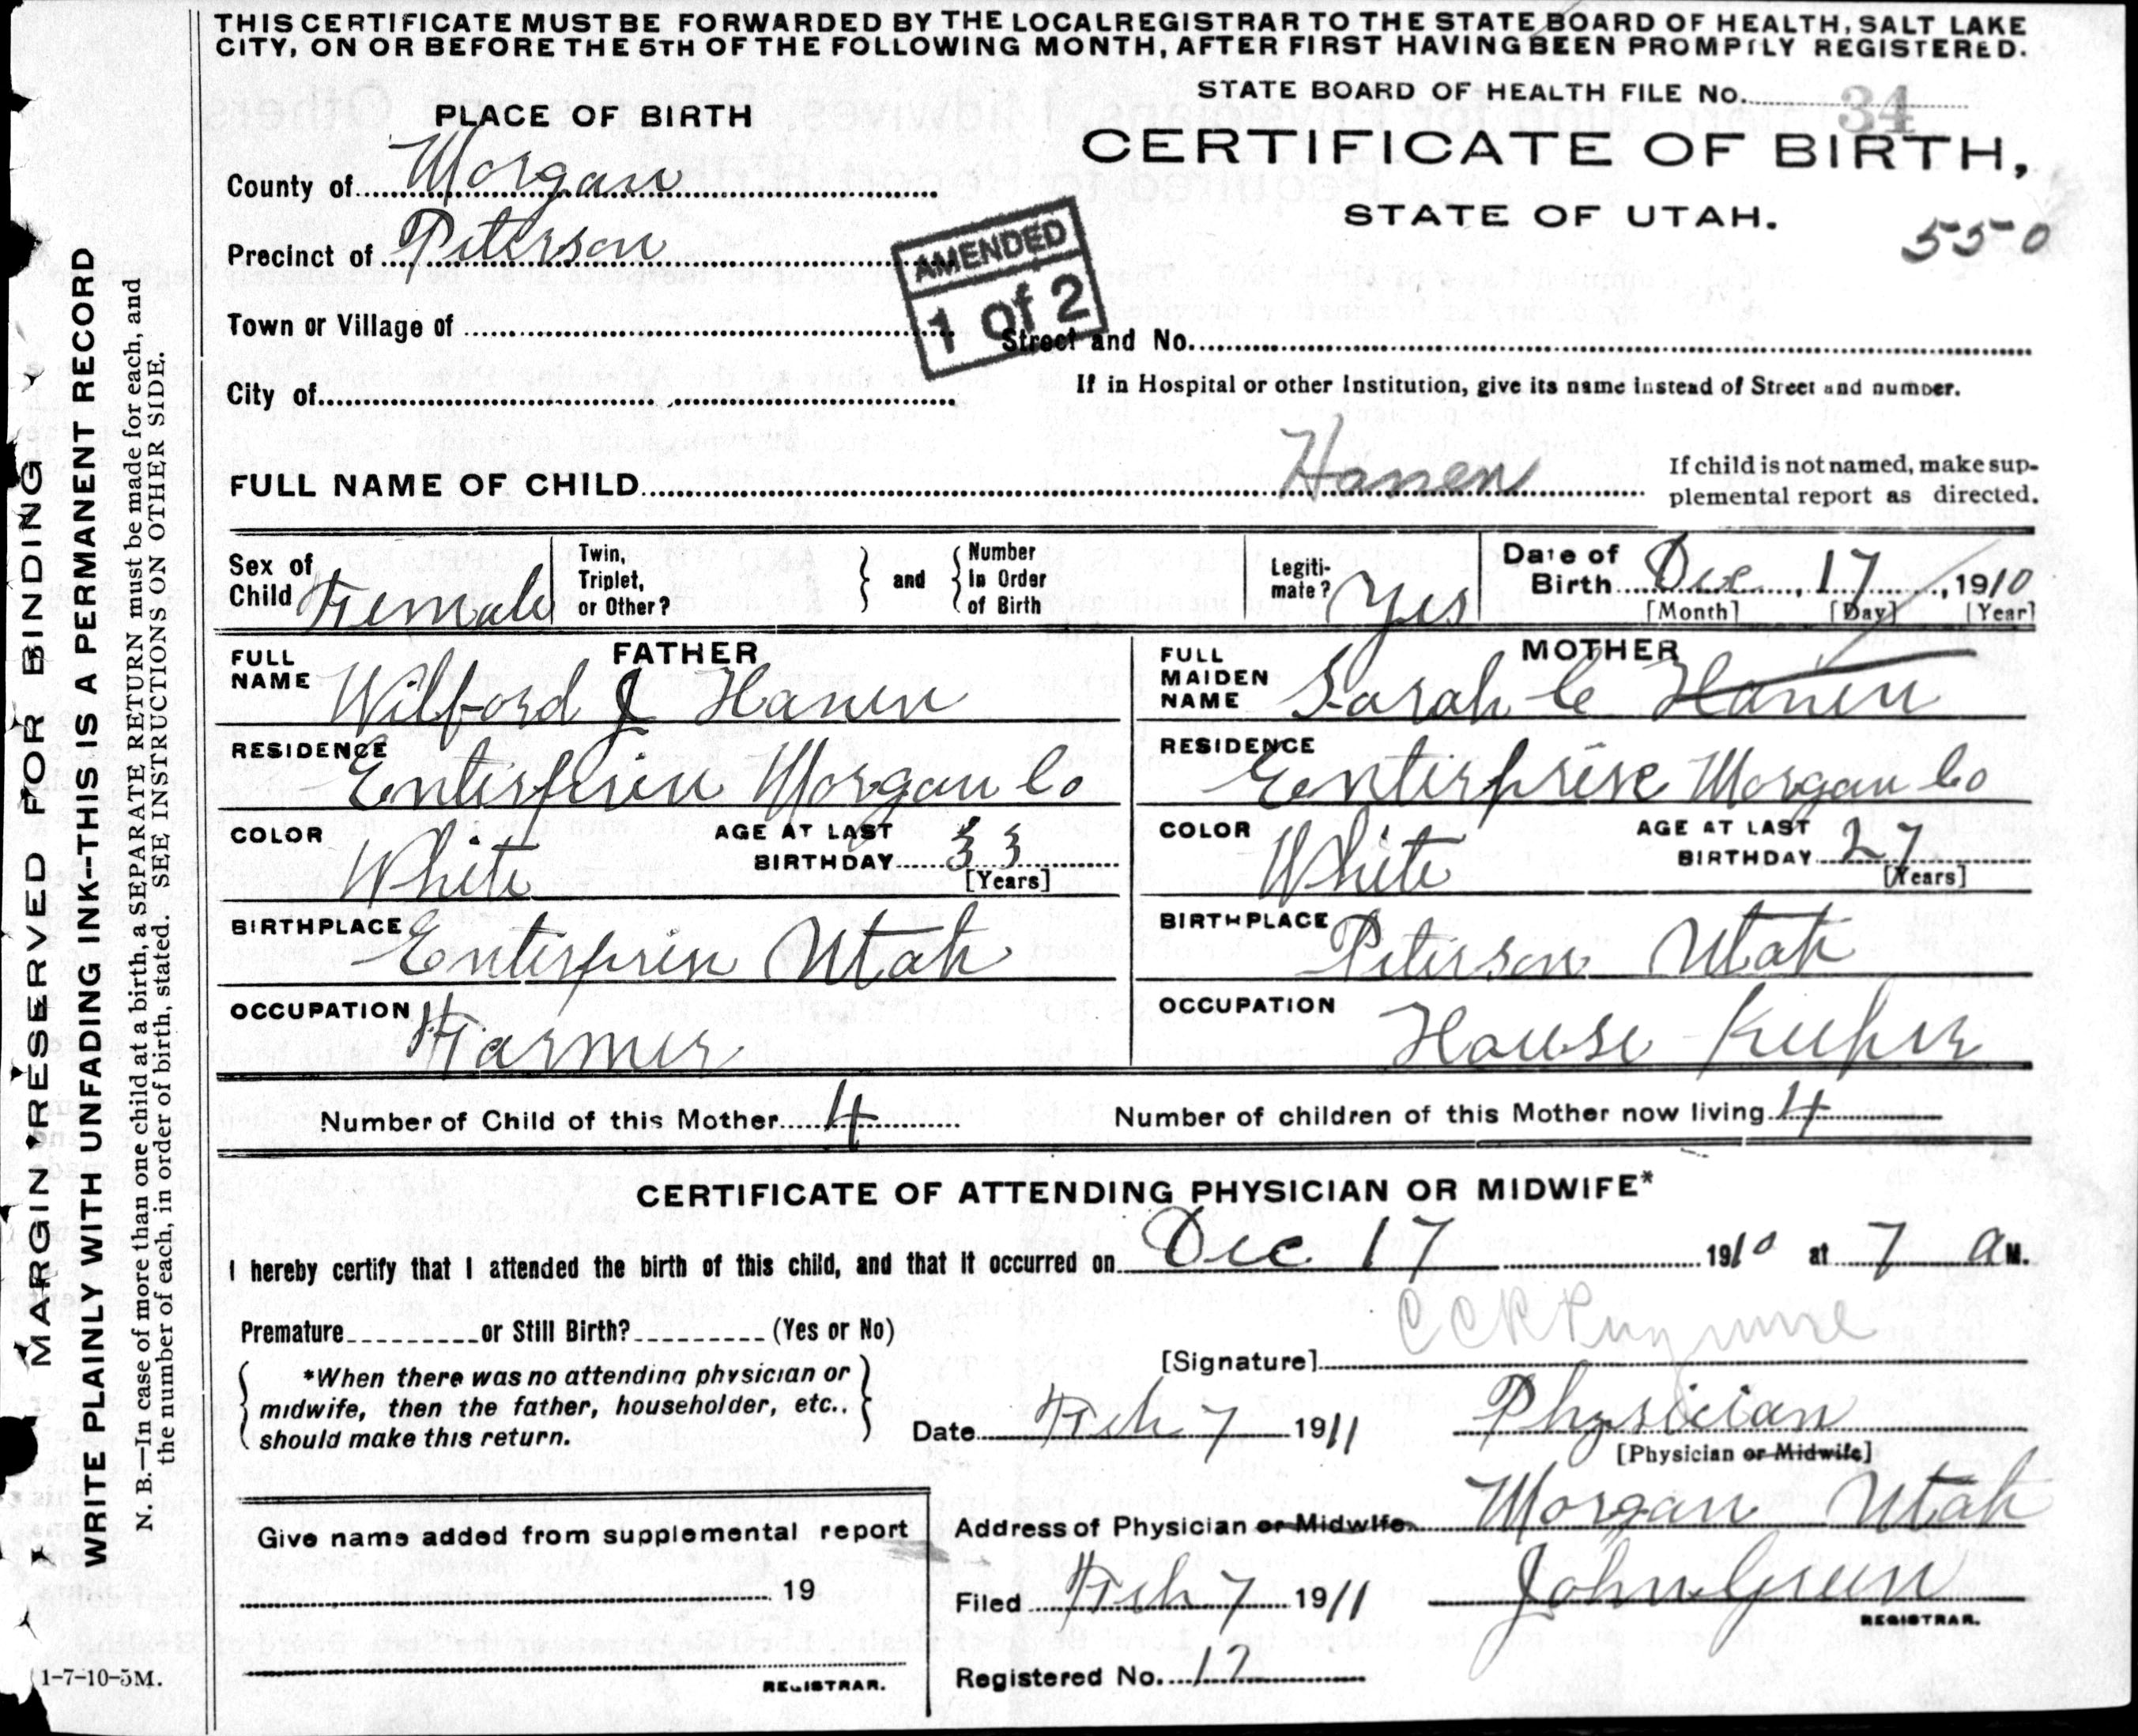 THIS CERTIFICATE MUST BE FORWARDED BY THE LOCAL REGISTRAR TO THE STATE BOARD OF HEALTH, SALT LAKE
CITY, ON OR BEFORE THE 5TH OF THE FOLLOWING MONTH, AFTER FIRST HAVING BEEN PROMPTLY REGISTERED.
STATE BOARD OF HEALTH FILE No. 34
PLACE OF BIRTH
CERTIFICATE OF BIRTH,
STATE OF UTAH.
550
County of Morgan
Precinct of Peterson
AMENDED
1 Of 2
Town or Village of
Street and No.
City of
If in Hospital or other Institution, give its name instead of Street and number.
FULL NAME OF CHILD Hanen
If child is not named, make sup-
plemental report as directed.
Sex of Child Female
Twin, Triplet, or Other? } and { Number In Order of Birth
Legiti-mate? Yes
Date of Birth Dec 17, 1910
[Month] [Day] [Year]
FATHER
FULL NAME Wilford J Hanen
RESIDENCE Enterprise Morgan Co
COLOR White AGE AT LAST BIRTHDAY 33 [Years]
BIRTHPLACE Enterprise Utah
OCCUPATION Farmer
MOTHER
FULL MAIDEN NAME Sarah C Hanen
RESIDENCE Enterprise Morgan Co
COLOR White AGE AT LAST BIRTHDAY 27 [Years]
BIRTHPLACE Peterson Utah
OCCUPATION House Keeper
Number of Child of this Mother 4 Number of children of this Mother now living 4
CERTIFICATE OF ATTENDING PHYSICIAN OR MIDWIFE*
I hereby certify that I attended the birth of this child, and that it occurred on Dec 17 1910 at 7 a M.
Premature or Still Birth? (Yes or No)
*When there was no attending physician or
midwife, then the father, householder, etc.,
should make this return.
[Signature]
Date Feb 7 1911 Physician
[Physician or Midwife]
Address of Physician or Midwife Morgan Utah
Filed Feb 7 1911 John Green
REGISTRAR.
Registered No. 12
Give name added from supplemental report
19
REGISTRAR.
1-7-10-5M.
MARGIN RESERVED FOR BINDING
WRITE PLAINLY WITH UNFADING INK--THIS IS A PERMANENT RECORD
N. B.—In case of more than one child at a birth, a SEPARATE RETURN must be made for each, and
the number of each, in order of birth, stated. SEE INSTRUCTIONS ON OTHER SIDE.